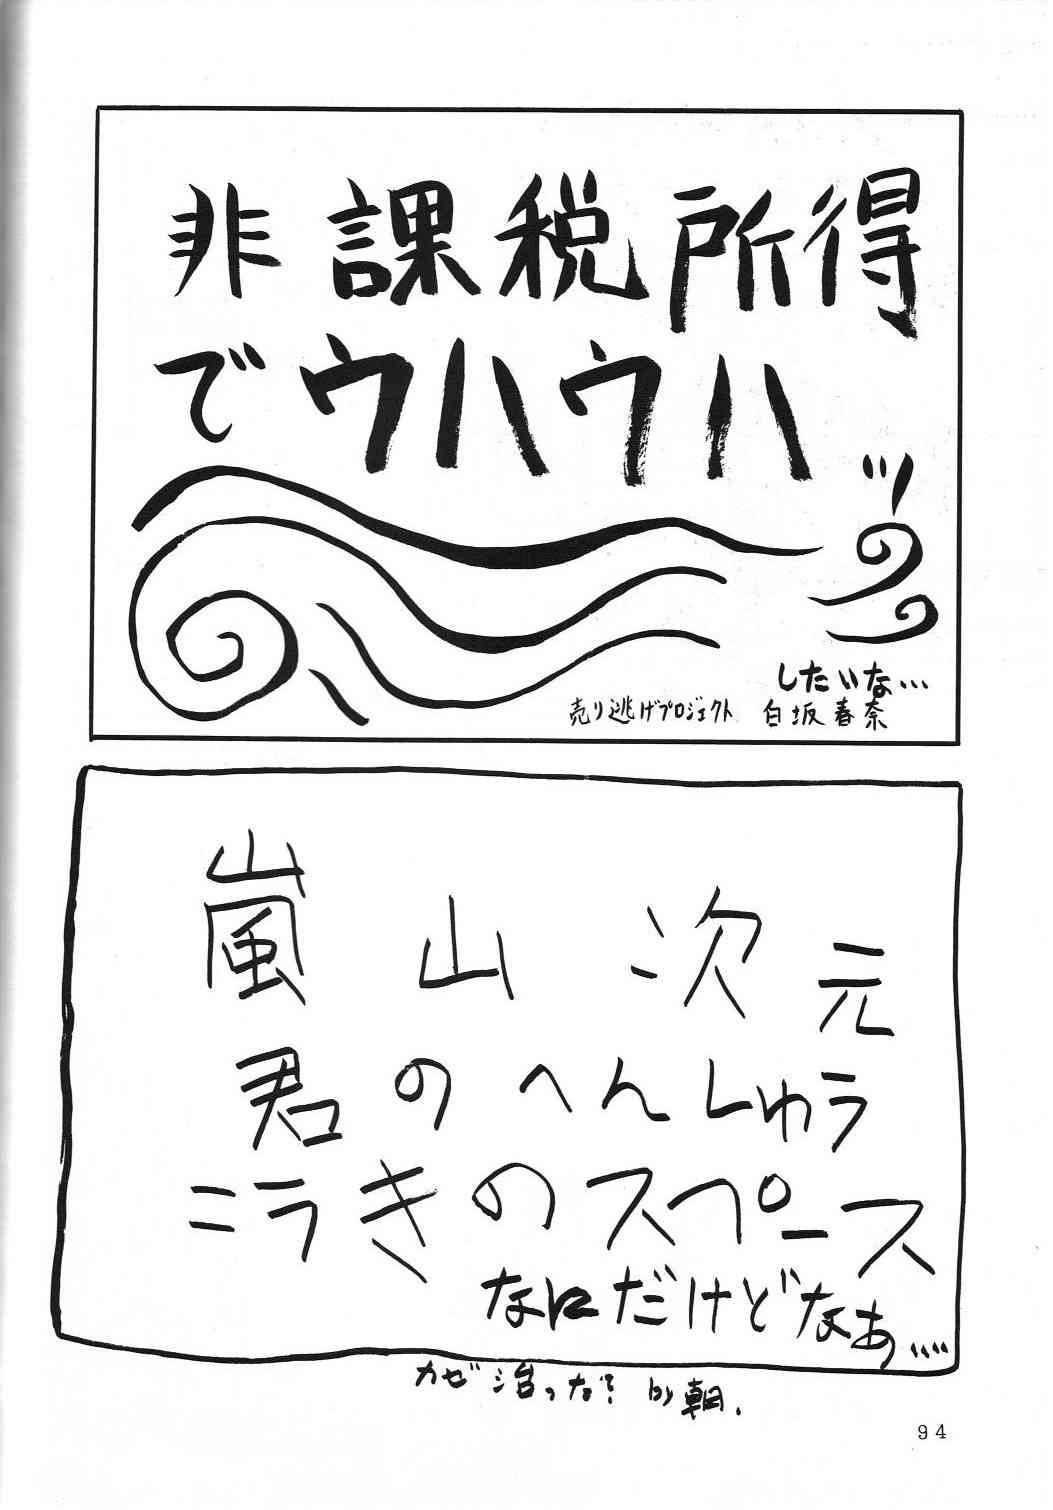 非課税所得
でウハウハ
したいな…
売り逃げプロジェクト 白坂春奈
嵐山次元
君のへんしゅう
こうきのスペース
なにだけどなぁ……
カゼ治ったな? by 朝.
94